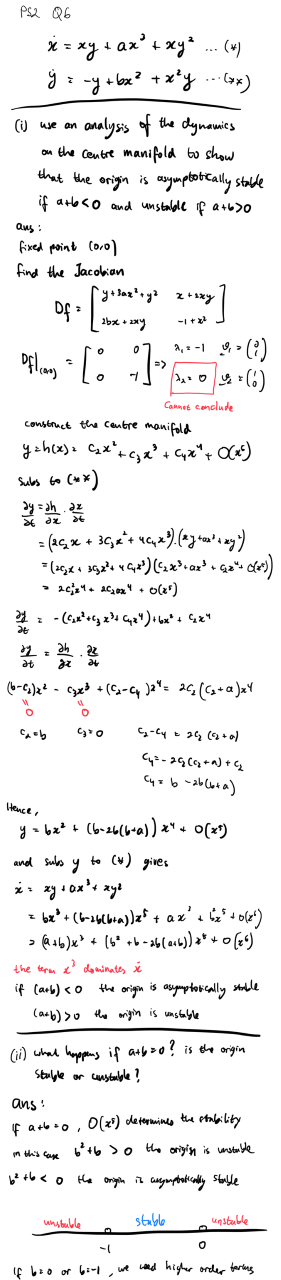 PS2 Q6
ẋ = xy + ax³ + xy² ... (*)
ẏ = -y + bx² + x²y ... (**)
(i) use an analysis of the dynamics
on the centre manifold to show
that the origin is asymptotically stable
if a+b<0 and unstable if a+b>0
ans:
fixed point (0,0)
find the Jacobian
Df = [ y+3ax²+y² x+2xy
2bx+2xy -1+x² ]
Df|(0,0) = [ 0 0
0 -1 ] => λ₁ = -1 v₁ = (0 1)
λ₂ = 0 v₂ = (1 0)
Cannot conclude
construct the centre manifold
y = h(x) = C₂x² + C₃x³ + C₄x⁴ + O(x⁵)
subs to (**)
∂y/∂t = ∂h/∂x · ∂x/∂t
= (2C₂x + 3C₃x² + 4C₄x³)·(xy+ax³+xy²)
= (2C₂x + 3C₃x² + 4C₄x³)(C₂x³+ax³+C₃x⁴+O(x⁵))
= 2C₂²x⁴ + 2C₂ax⁴ + O(x⁵)
∂y/∂t = -(C₂x²+C₃x³+C₄x⁴)+bx²+C₂x⁴
∂y/∂t = ∂h/∂x · ∂x/∂t
(b-C₂)x² - C₃x³ + (C₂-C₄)x⁴ = 2C₂(C₂+a)x⁴
= 0 = 0
C₂=b C₃=0 C₂-C₄ = 2C₂(C₂+a)
C₄=-2C₂(C₂+a)+C₂
C₄ = b -2b(b+a)
Hence,
y = bx² + (b-2b(b+a))x⁴ + O(x⁵)
and subs y to (*) gives
ẋ = xy + ax³ + xy²
= bx³ + (b-2b(b+a))x⁵ + ax³ + b²x⁵ + O(x⁶)
= (a+b)x³ + (b²+b-2b(a+b))x⁵ + O(x⁶)
the term x³ dominates ẋ
if (a+b) < 0 the origin is asymptotically stable
(a+b) > 0 the origin is unstable
(ii) what happens if a+b=0? is the origin
stable or unstable?
ans:
if a+b=0, O(x⁵) determines the stability
in this case b²+b > 0 the origin is unstable
b²+b < 0 the origin is asymptotically stable
unstable stable unstable
-1 0
if b=0 or b=-1, we need higher order terms